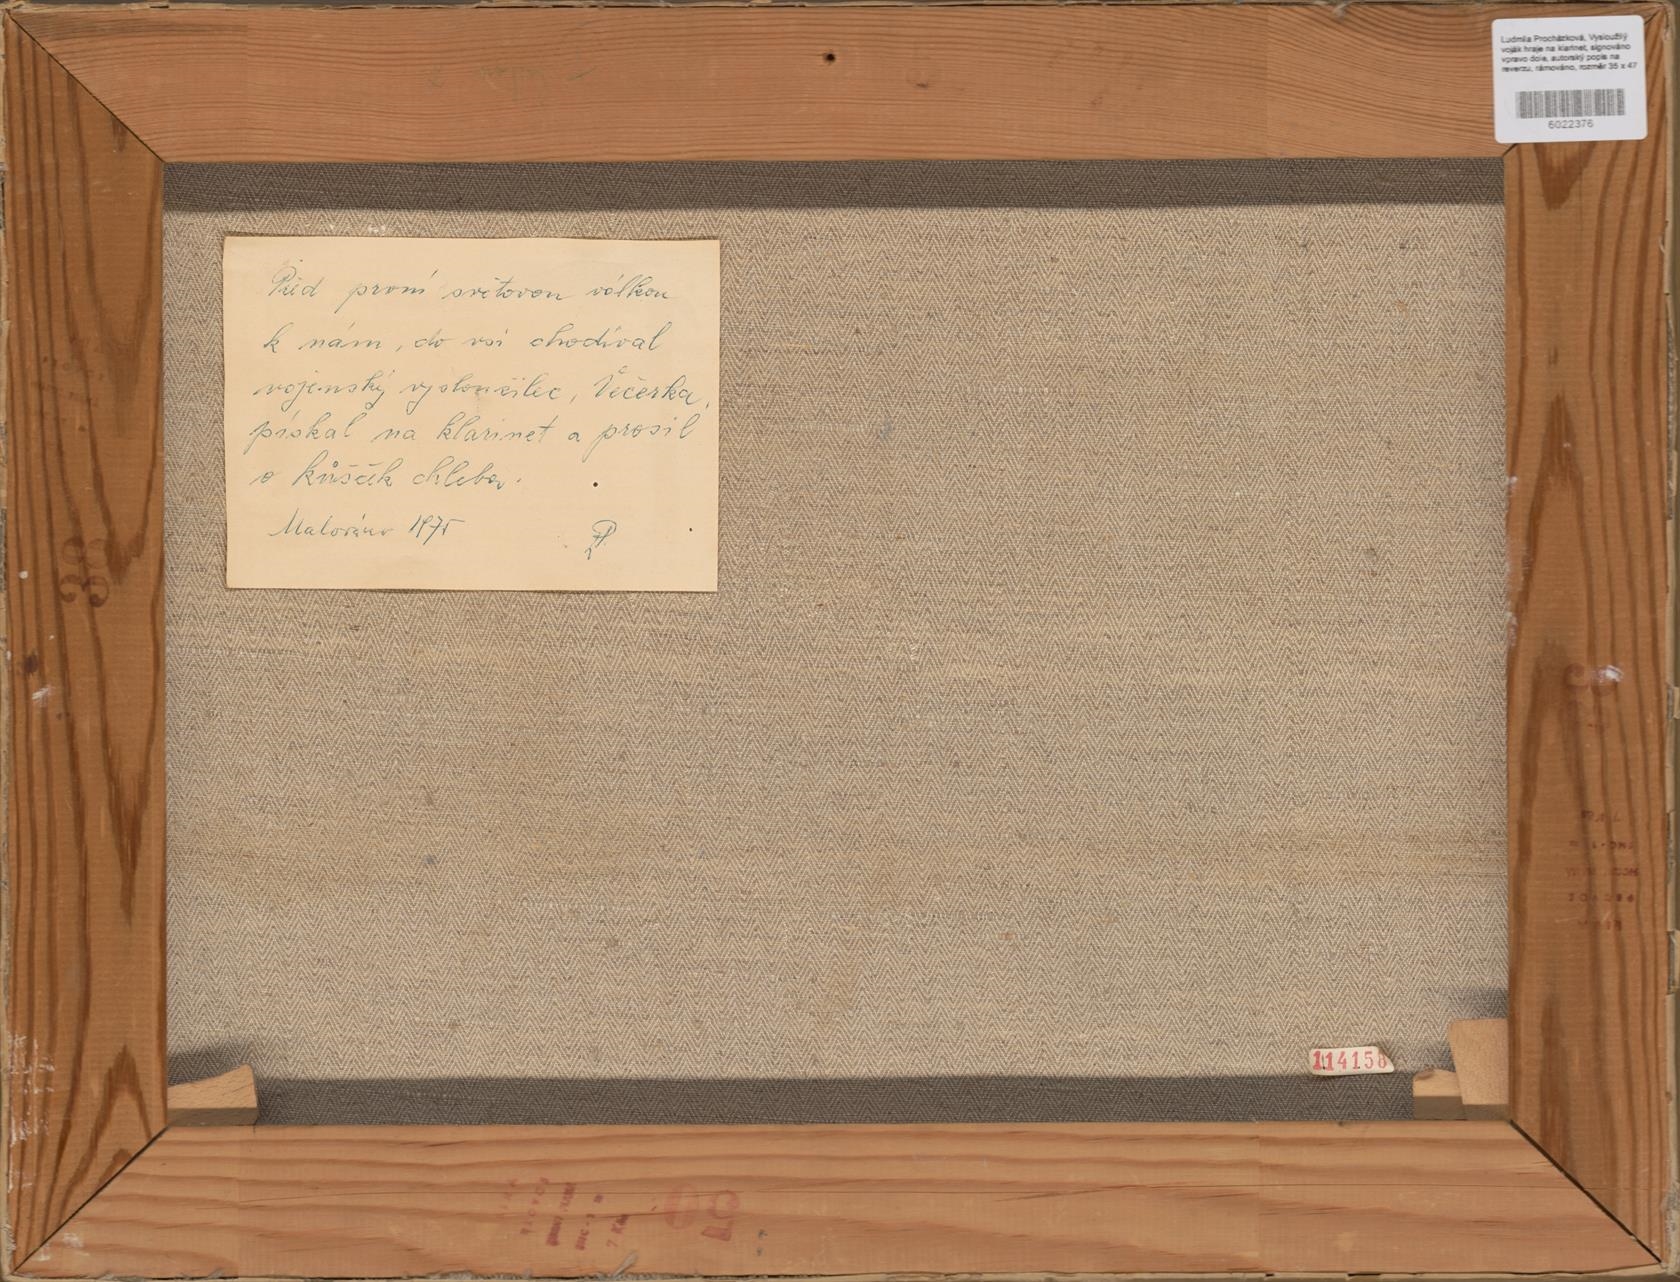 Ludmila Procházková, Vysloužilý
voják hraje na klarinet, signováno
vpravo dole, autorský popis na
reverzu, rámováno, rozměr 35 x 47
6022376
Před první světovou válkou
k nám, do vsi chodíval
vojenský vysloužilec, Večerka,
pískal na klarinet a prosil
o kůsček chleba.
1975
38
114158